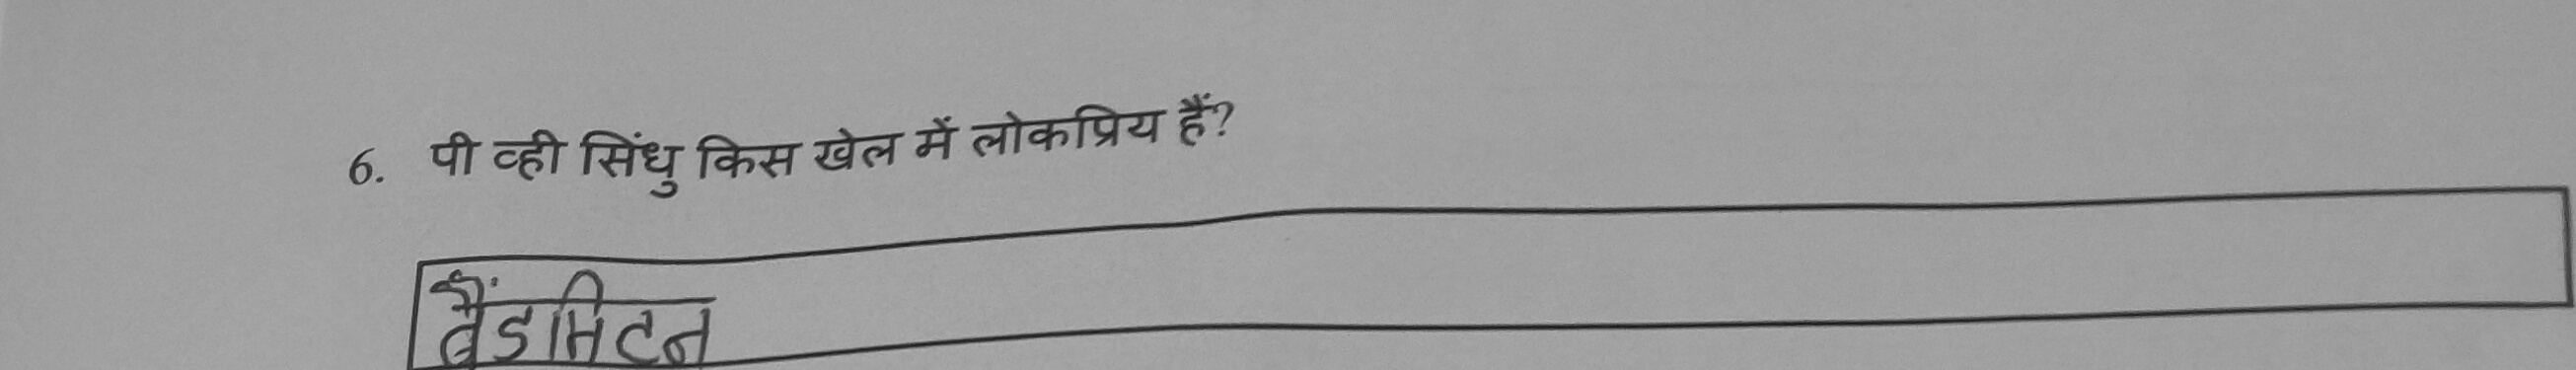 6. पी व्ही सिंधु किस खेल में लोकप्रिय हैं?
बैंडमिटन